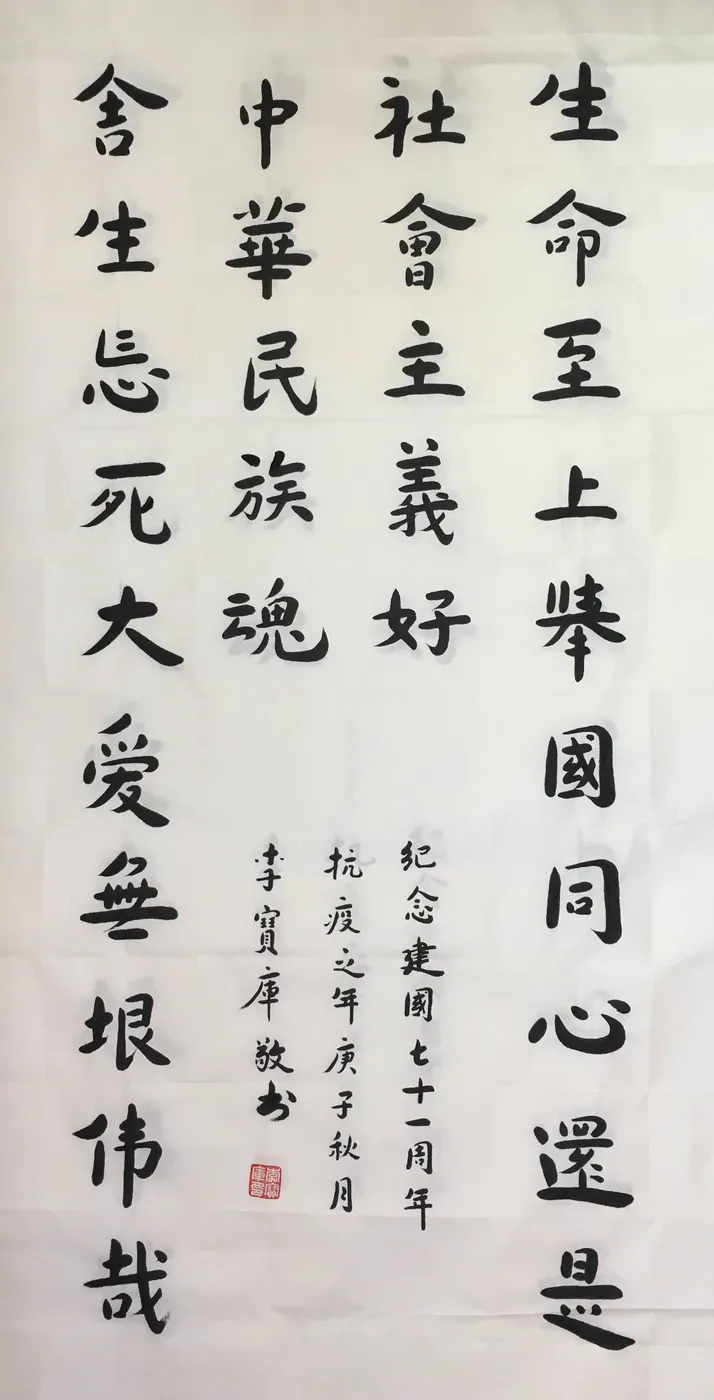 生命至上舉國同心還是
社會主義好
舍生忘死大爱無垠伟哉
中華民族魂
紀念建國七十一周年
抗疫之年庚子秋月
李寶庫敬书
李寶庫印